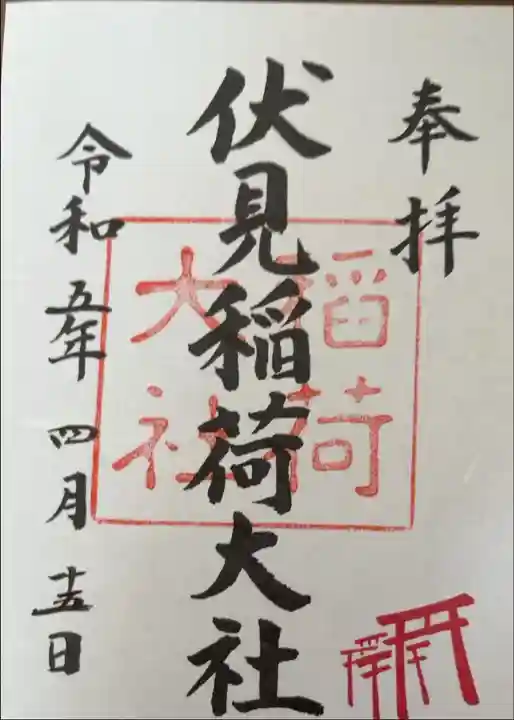 奉拝
伏見稲荷大社
稲荷
大社
令和五年四月十五日